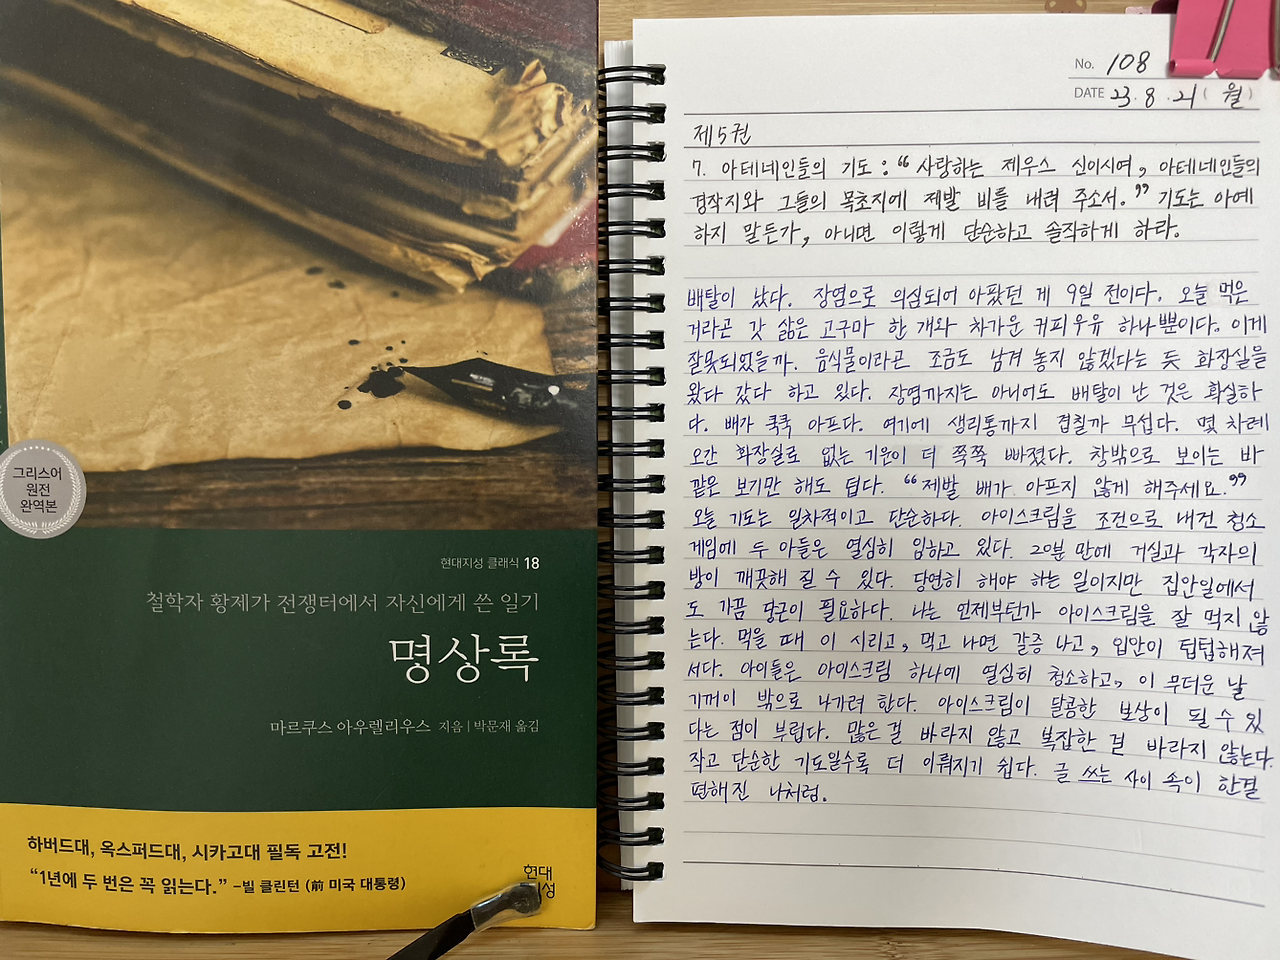 그리스어
원전
완역본
현대지성 클래식 18
철학자 황제가 전쟁터에서 자신에게 쓴 일기
명상록
마르쿠스 아우렐리우스 지음 | 박문재 옮김
하버드대, 옥스퍼드대, 시카고대 필독 고전!
“1년에 두 번은 꼭 읽는다.” –빌 클린턴 (前 미국 대통령)
현대
지성
No. 108
DATE 23. 8. 21 (월)
제5권
7. 아테네인들의 기도 : “사랑하는 제우스 신이시여, 아테네인들의
경작지와 그들의 목초지에 제발 비를 내려 주소서.” 기도는 아예
하지 말든가, 아니면 이렇게 단순하고 솔직하게 하라.
배탈이 났다. 장염으로 의심되어 아팠던 게 9일 전이다. 오늘 먹은
거라곤 갓 삶은 고구마 한 개와 차가운 커피우유 하나뿐이다. 이게
잘못되었을까. 음식물이라곤 조금도 남겨 놓지 않겠다는 듯 화장실을
왔다 갔다 하고 있다. 장염까지는 아니어도 배탈이 난 것은 확실하
다. 배가 쿡쿡 아프다. 여기에 생리통까지 겹칠까 무섭다. 몇 차례
오간 화장실로 없는 기운이 더 쪽쪽 빠졌다. 창밖으로 보이는 바
깥은 보기만 해도 덥다. “제발 배가 아프지 않게 해주세요.”
오늘 기도는 일차적이고 단순하다. 아이스크림을 조건으로 내건 청소
게임에 두 아들은 열심히 임하고 있다. 20분 만에 거실과 각자의
방이 깨끗해 질 수 있다. 당연히 해야 하는 일이지만 집안일에서
도 가끔 당근이 필요하다. 나는 언제부턴가 아이스크림을 잘 먹지 않
는다. 먹을 때 이 시리고, 먹고 나면 갈증 나고, 입안이 텁텁해져
서다. 아이들은 아이스크림 하나에 열심히 청소하고, 이 무더운 날
기꺼이 밖으로 나가려 한다. 아이스크림이 달콤한 보상이 될 수 있
다는 점이 부럽다. 많은 걸 바라지 않고 복잡한 걸 바라지 않는다.
작고 단순한 기도일수록 더 이뤄지기 쉽다. 글 쓰는 사이 속이 한결
편해진 나처럼.